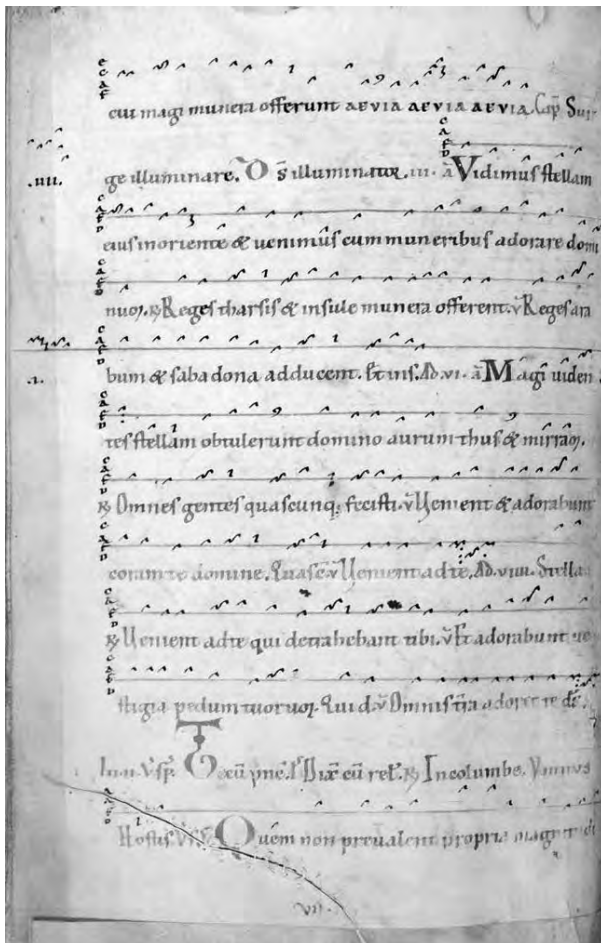 cui magi munera offerunt aevia aevia aevia. Cap̄ Sur
ge illuminare. Os̄ illuminatoꝝ .iii. a᷈ Vidimus stellam
.iiii.
eius in oriente & uenimus cum muneribus adorare domi
nuoꝫ. ℟ Reges tharsis & insule munera offerent. ℣ Reges ara
bum & saba dona adducent. Ad .vi. a᷈ Magi uiden
.i.
tes stellam obtulerunt domino aurum thus & mirraꝫ.
℟ Omnes gentes quascunq; fecisti. ℣ Uenient & adorabunt
coram te domine. ℣ Uenient ad te. Ad .viiii. Stella
℟ Uenient ad te qui detrahebant tibi. ℣ Et adorabunt ue
stigia pedum tuoruꝫ. Qui d. ℣ Omnis t̄ra adoret te
In .ii. Vsp̄. ℟ In columbe. Ymnus
Hostis. Quem non preualent propria magnitudi
VII.